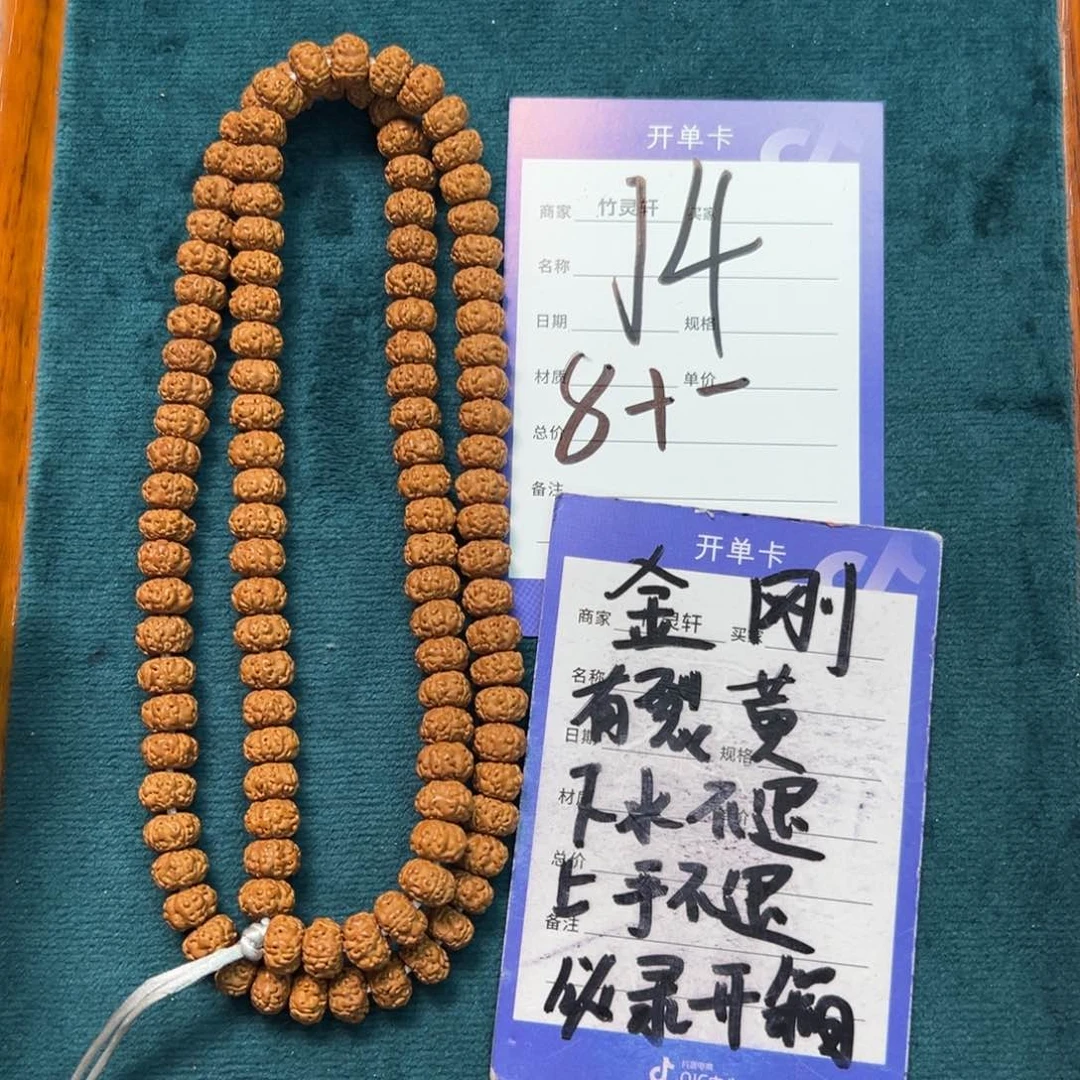 开单卡
商家 竹灵轩 买家
J4
名称
日期 规格
材质 单价
8+-
总价
备注
开单卡
金刚
商家 竹灵轩 买家
名称
有裂黄
日期 规格
下水不退
材质 单价
总价
上手不退
备注
必录开箱
抖音电商